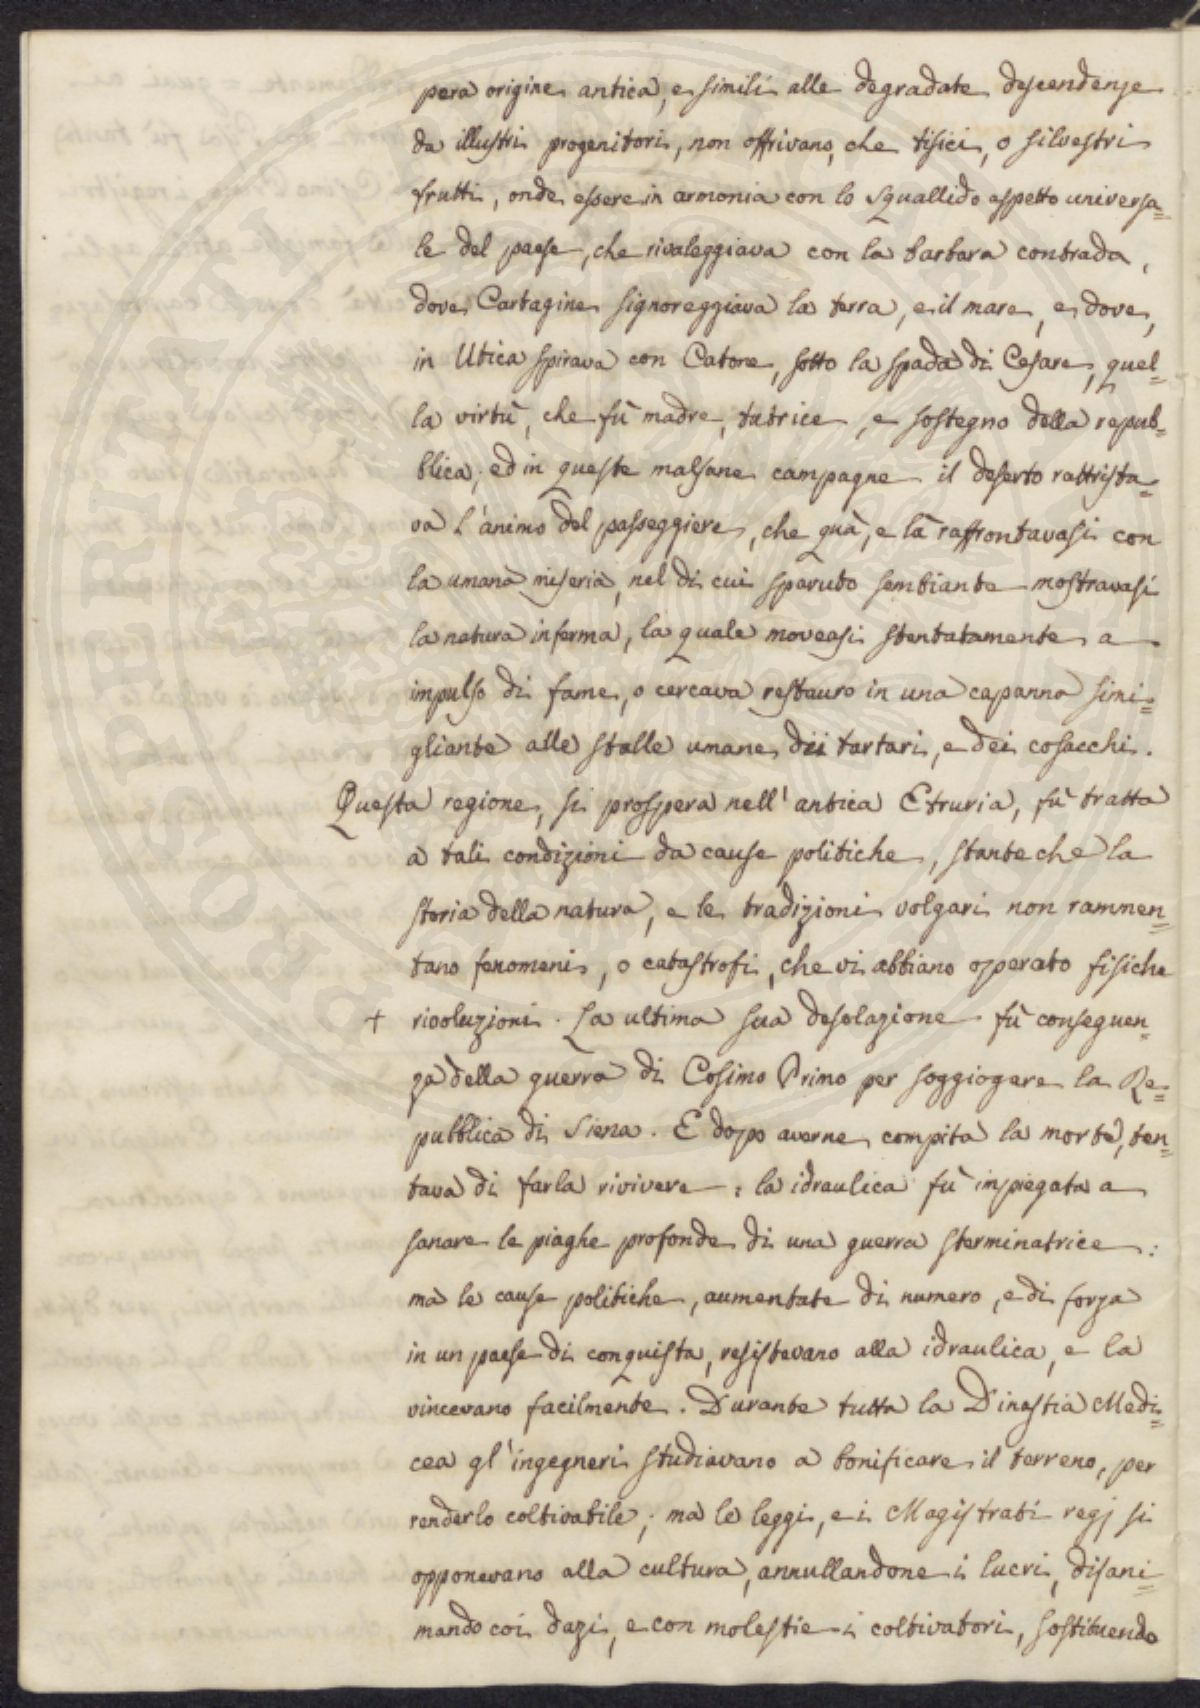 pera origine antica, e simili alle degradate descendenze
da illustri progenitori, non offrivano, che tisici, o silvestri
frutti, onde essere in armonia con lo squallido aspetto universa=
le del paese, che rivaleggiava con la barbara contrada,
dove Cartagine signoreggiava la terra, e il mare, e dove,
in Utica spirava con Catone, sotto la spada di Cesare, quel=
la virtù, che fù madre, tutrice, e sostegno della repub=
blica; ed in queste malsane campagne il deserto rattrista=
va l'animo del passeggiere, che quà, e là raffrontavasi con
la umana miseria, nel di cui sparuto sembiante mostravasi
la natura inferma, la quale moveasi stentatamente a
impulso di fame, o cercava restauro in una capanna simi=
gliante alle stalle umane dei tartari, e dei cosacchi.
Questa regione, sì prospera nell'antica Etruria, fù tratta
a tali condizioni da cause politiche, stanteche la
storia della natura, e le tradizioni volgari non rammen=
tano fenomeni, o catastrofi, che vi abbiano operato fisiche
+ rivoluzioni. La ultima sua desolazione fù conseguen=
za della guerra di Cosimo Primo per soggiogare la Re=
pubblica di Siena. E dopo averne compita la morte, ten=
tava di farla rivivere: la idraulica fù impiegata a
sanare le piaghe profonde di una guerra sterminatrice:
ma le cause politiche, aumentate di numero, e di forza
in un paese di conquista, resistevano alla idraulica, e la
vincevano facilmente. Durante tutta la Dinastia Medi=
cea gl'ingegneri studiavano a bonificare il terreno, per
renderlo coltivabile; ma le leggi, e i Magistrati regj si
opponevano alla cultura, annullandone i lucri, disani=
mando coi dazi, e con molestie i coltivatori, sostituendo
PROSPERITATI